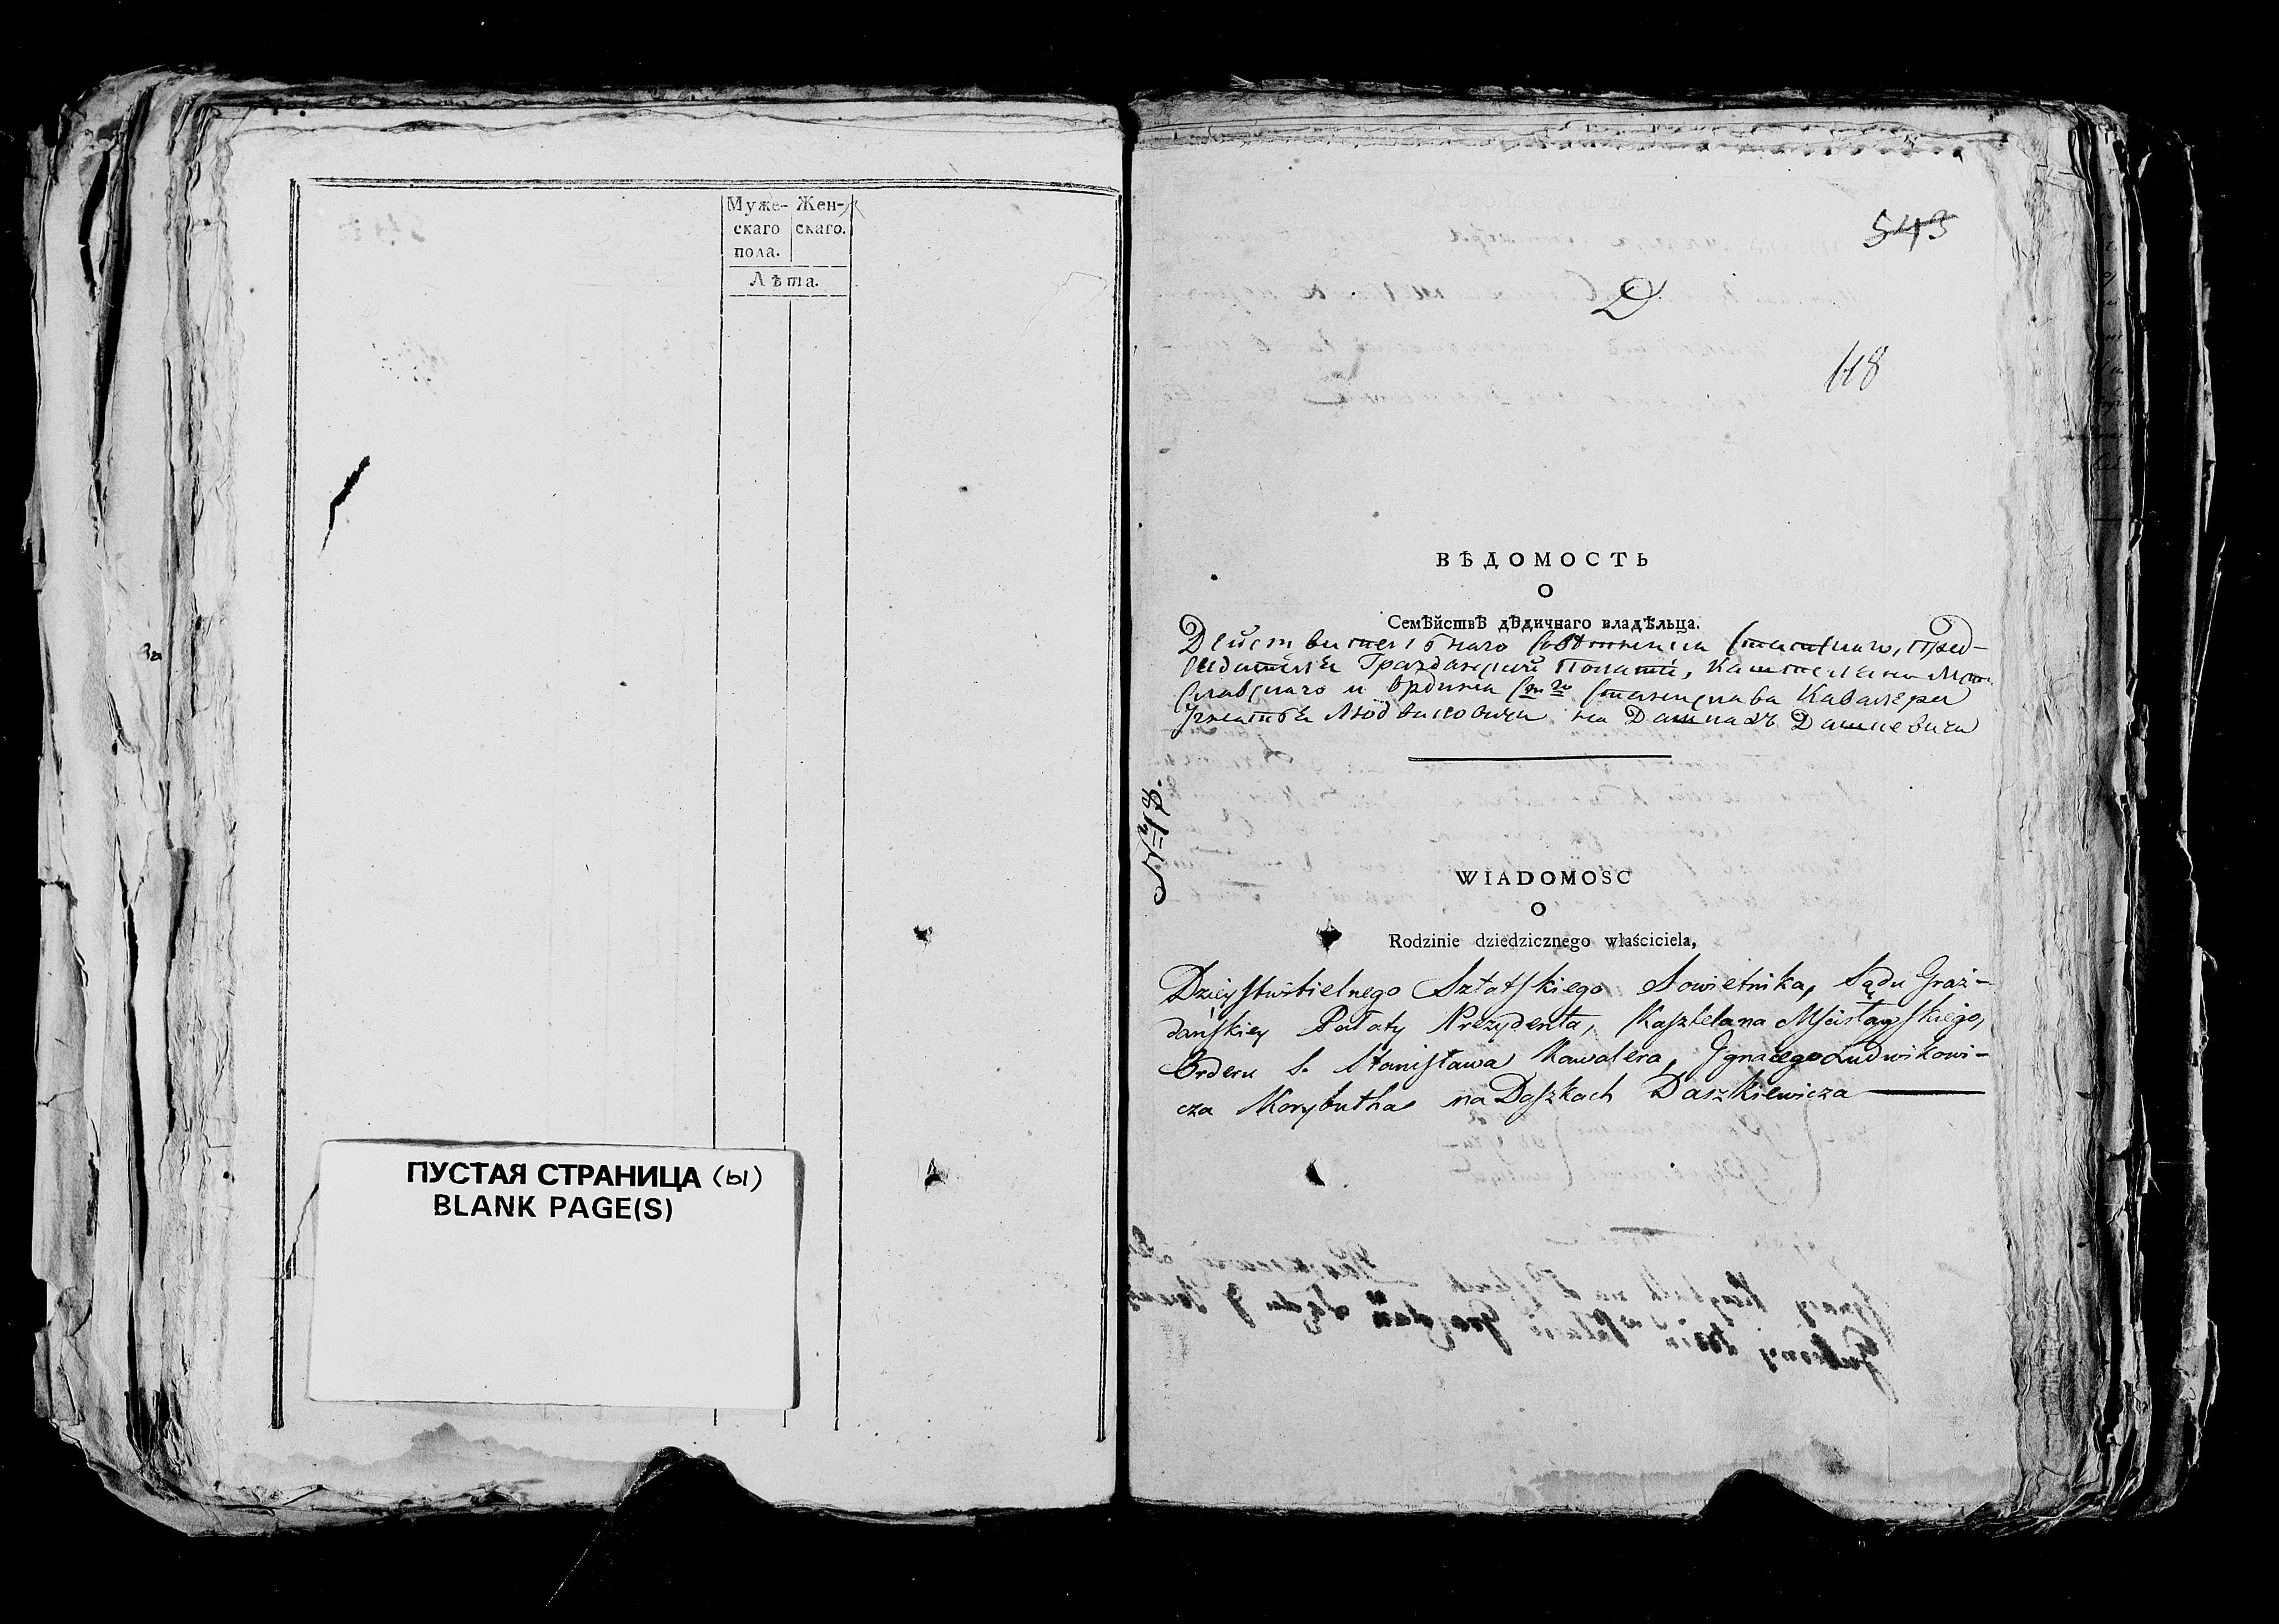 Муже- Жен-
скаго скаго.
пола.
Лѣта.
ПУСТАЯ СТРАНИЦА (ы)
BLANK PAGE(S)
543
D
118
ВѢДОМОСТЬ
О
Семѣйствѣ дѣдичнаго владѣльца.
Действительнаго Совѣтника Статскаго, Пред-
седателя Гражданской Полати, Каштеляна
Славскаго и Ордина Станислава Кавалера
Игнатья Людвиковича на Дашкахъ Дашкевича
WIADOMOSC
O
Rodzinie dziedzicznego właściciela,
Dzieystwitielnego Sztatskiego Sowietnika, Sądu Graż-
dańskiey Pałaty Prezydenta, Kasztelana Mścisławskiego,
Orderu S. Stanisława Kawalera, Ignacego Ludwikowi-
cza Korybutha na Daszkach Daszkiewicza